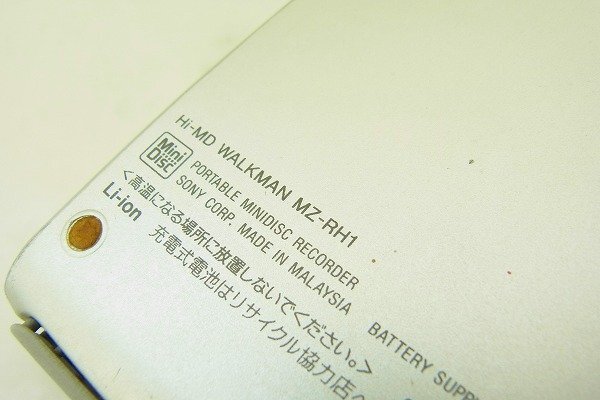 Hi-MD WALKMAN MZ-RH1
Mini Disc
PORTABLE MINIDISC RECORDER
SONY CORP. MADE IN MALAYSIA
BATTERY
<高温になる場所に放置しないでください。>
Li-ion
充電式電池はリサイクル協力店へ